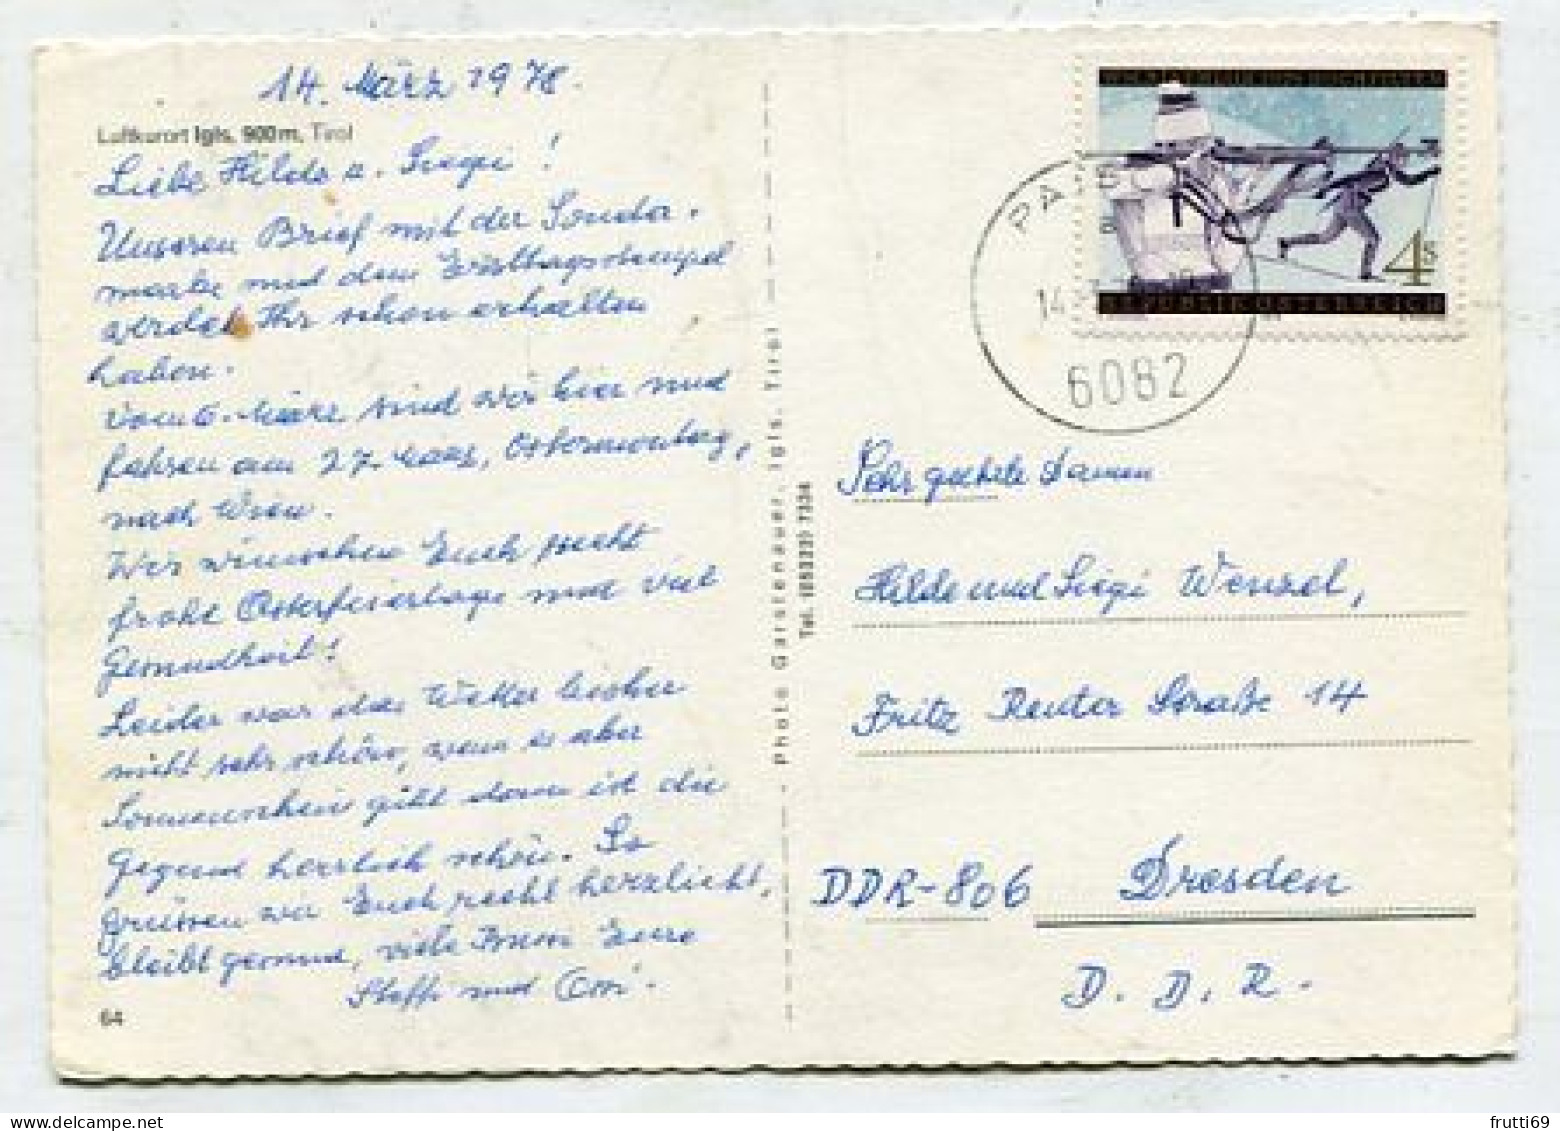 14. März 1978.
Luftkurort Igls, 900m, Tirol
Liebe Hilde u. Siegi!
Unseren Brief mit der Sonder-
marke und dem Ersttagsstempel
werdet Ihr schon erhalten
haben.
Vom 6. März sind wir hier und
fahren am 27. März, Ostermontag,
nach Wien.
Wir wünschen Euch recht
frohe Osterfeiertage und viel
Gesundheit!
Leider war das Wetter bisher
nicht sehr schön, wenn es aber
Sonnenschein gibt dann ist die
Gegend herrlich schön. So
grüssen wir Euch recht herzlichst,
bleibt gesund, viele Bussi Eure
Steffi und
64
Photo Garstenauer, Igls, Tirol
Tel. (05222) 7334
REPUBLIK ÖSTERREICH
4 S
6082
Sehr geehrte Damen
Hilde und Siegi Wenzel,
Fritz Reuter Straße 14
DDR-806 Dresden
D. D. R.
frutti69